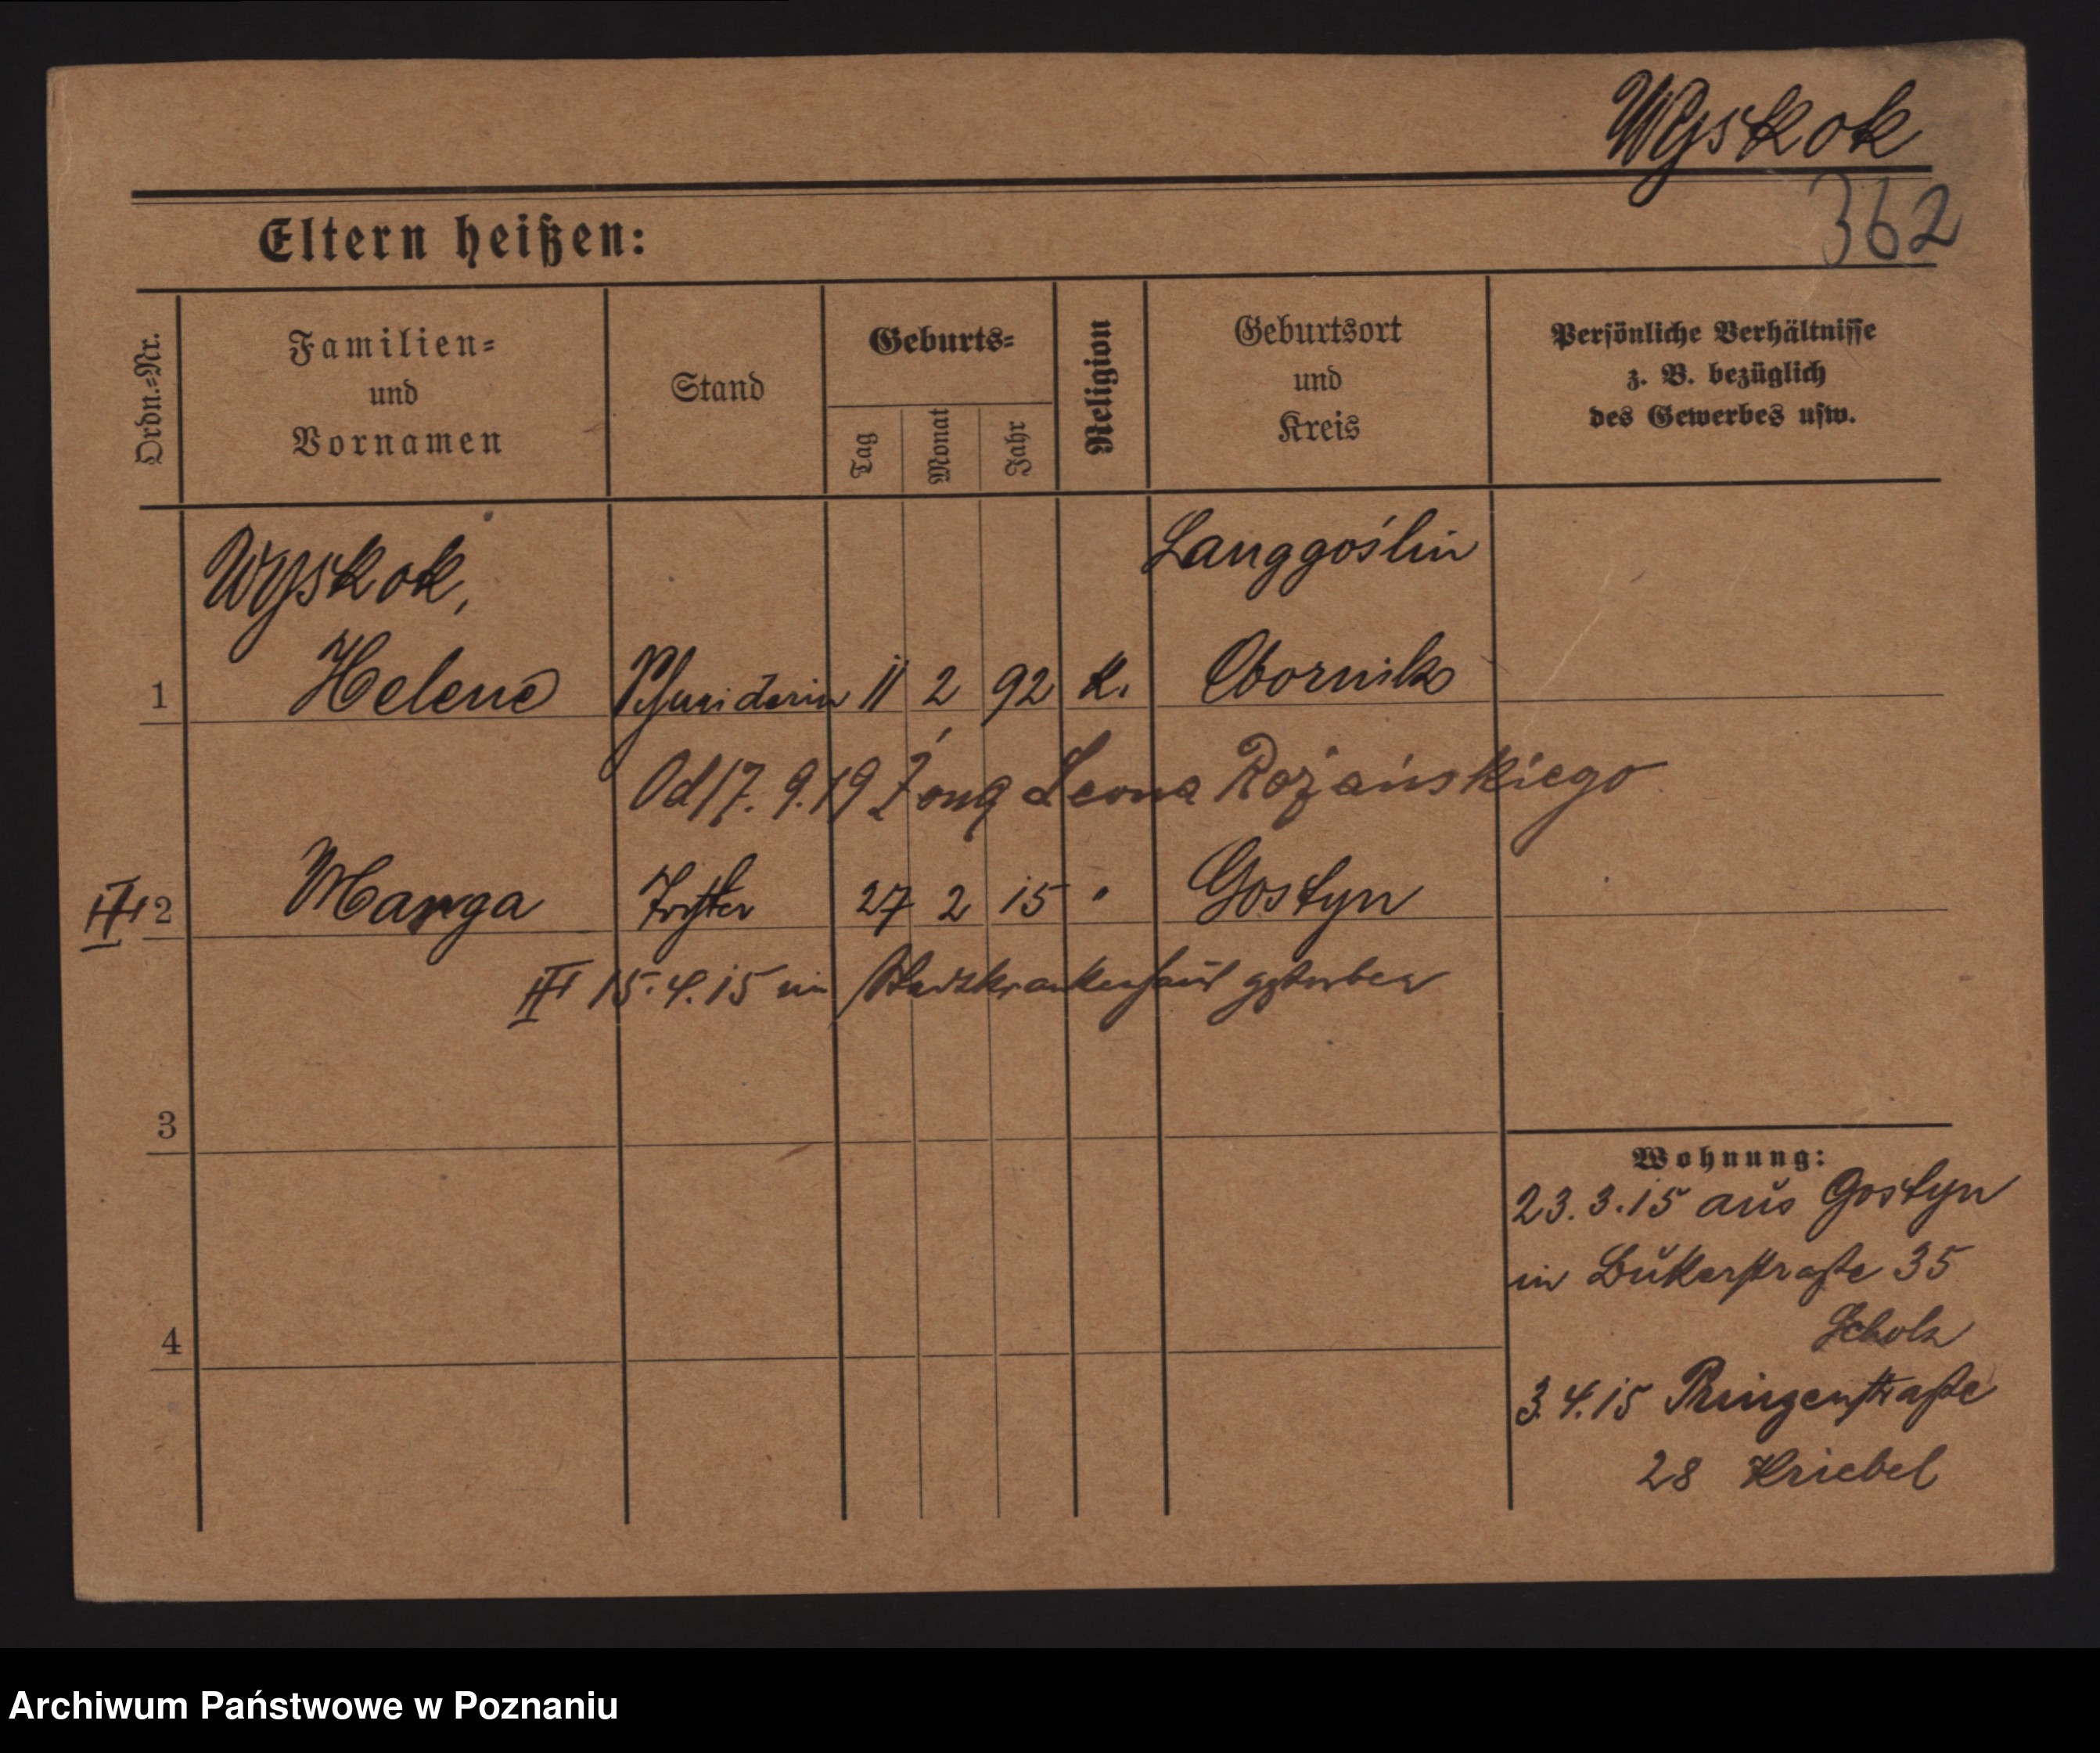 Wyskok
362
Eltern heißen:
Ordn.-Nr.
Familien-
und
Vornamen
Stand
Geburts-
Tag
Monat
Jahr
Religion
Geburtsort
und
Kreis
Persönliche Verhältnisse
z. B. bezüglich
des Gewerbes usw.
Wyskok,
Langgoślin
1 Helene Schneiderin 11 2 92 K. Obornik
Od 17. 9. 19 żoną Leona Rożańskiego
2 Marga Tochter 27 2 15 " Gostyn
15. 4. 15 im Stadtkrankenhaus gestorben
3
4
Wohnung:
23. 3. 15 aus Gostyn
in Bukerstraße 35
Scholz
3. 4. 15 Prinzenstraße
28 Kriebel
Archiwum Państwowe w Poznaniu